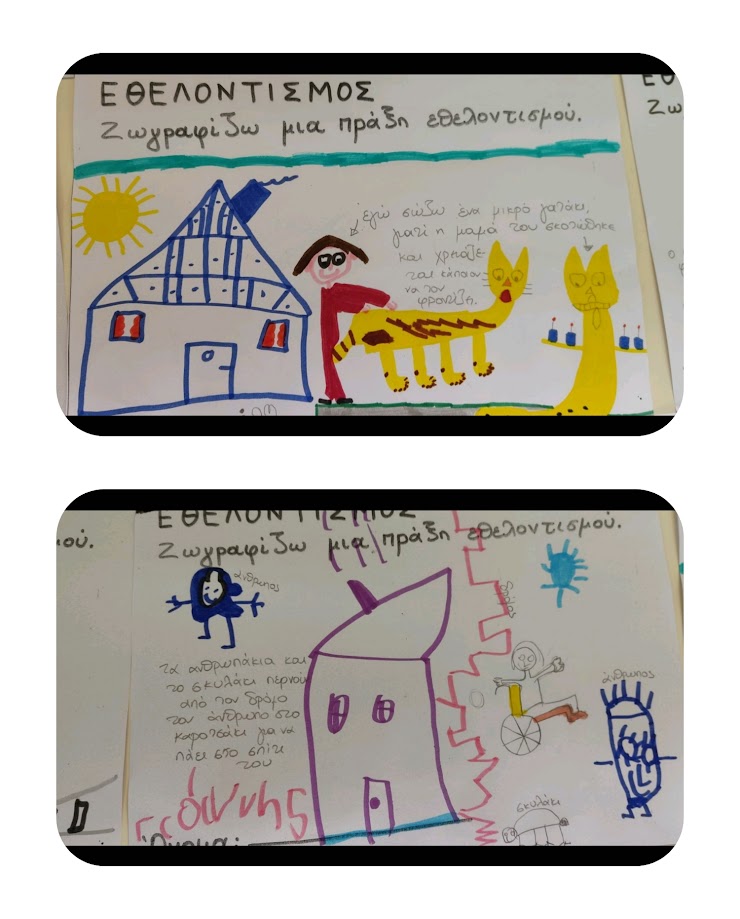 ΕΘΕΛΟΝΤΙΣΜΟΣ
Ζωγραφίζω μια πράξη εθελοντισμού.
εγώ σώζω ένα μικρό γατάκι,
γιατί η μαμά του σκοτώθηκε
και χρειάζε
ται κάποιον
να τον
φροντίζη.
Ζω
ΕΘΕΛΟΝΤΙΣΜΟΣ
Ζωγραφίζω μια πράξη εθελοντισμού.
ού.
άνθρωπος
δρόμος
άνθρωπος
Τα ανθρωπάκια και
το σκυλάκι περνούν
από τον δρόμο
τον άνθρωπο στο
καροτσάκι για να
πάει στο σπίτι
του
σκυλάκι
Όνομα: